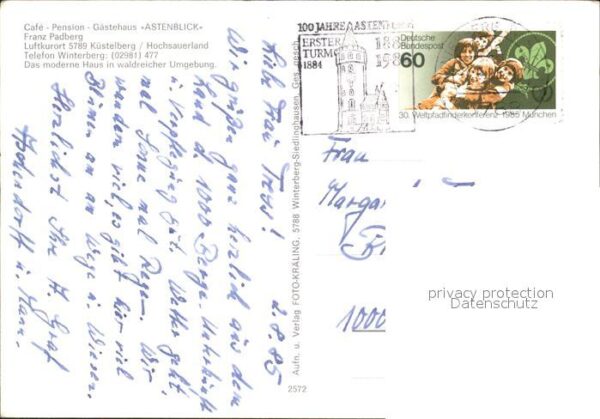 Café - Pension - Gästehaus »ASTENBLICK«
Franz Padberg
Luftkurort 5789 Küstelberg / Hochsauerland
Telefon Winterberg: (02981) 477
Das moderne Haus in waldreicher Umgebung.
2.8.85
Lieb. Frau !
Wir grüßen ganz herzlich aus dem
Land d. 1000 Berge. Unterkunft
u. Verpflegung gut. Wetter geht,
mal Sonne mal Regen. Wir
wandern viel, es gibt hier viel
Blumen am Wege u. Wiesen.
Herzlichst Ihre H. Graf
u. Mann.
Aufn. u. Verlag FOTO-KRALING, 5788 Winterberg-Siedlinghausen, Ges. gesch.
2572
100 JAHRE ASTENTURM
ERSTER
TURM
1884
Deutsche
Bundespost
60
30. Weltpfadfinderkonferenz 1985 München
Frau
Margar
1000
privacy protection
Datenschutz